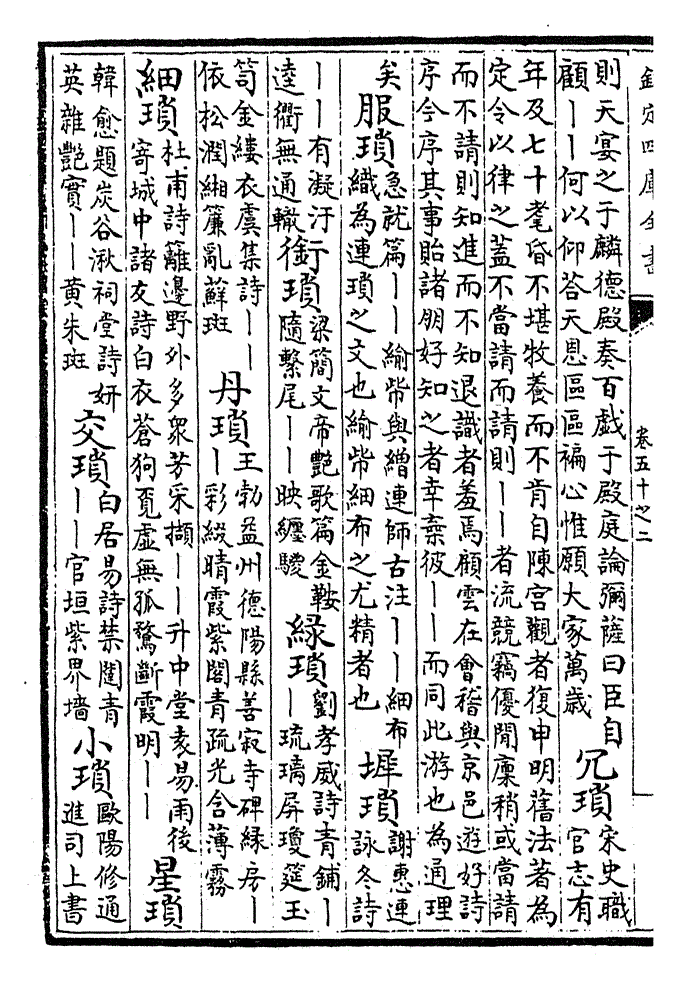 欽定四庫全書
卷五十之二
則天宴之于麟德殿奏百戲于殿庭論彌薩曰臣自
顧丨丨何以仰荅天恩區區褊心惟願大家萬歲
冗瑣
宋史職
官志有
年及七十耄昏不堪牧養而不肯自陳宫觀者復申明舊法著為
定令以律之蓋不當請而請則丨丨者流競竊優閒廩稍或當請
而不請則知進而不知退識者羞焉顧雲在會稽與京邑遊好詩
序今序其事貽諸朋好知之者幸棄彼丨丨而同此游也為通理
矣
服瑣
急就篇丨丨緰幣與繒連師古注丨丨細布
織為連瑣之文也緰幣細布之尤精者也
墀瑣
謝惠連
詠冬詩
丨丨有凝汙
逵衢無通轍
銜瑣
梁簡文帝艷歌篇金鞍
隨繫尾丨丨映纒騣
緑瑣
劉孝威詩青鋪丨
丨琉璃屏瓊筵玉
笥金縷衣虞集詩丨丨
依松潤緗簾亂蘚斑
丹瑣
王勃益州德陽縣善寂寺碑縁房丨
丨彩綴晴霞紫閣青疏光含薄霧
細瑣
杜甫詩籬邊野外多衆芳采擷丨丨升中堂袁易雨後
寄城中諸友詩白衣蒼狗覓虛無孤鶩斷霞明丨丨
星瑣
韓愈題炭谷湫祠堂詩妍
英雜艷實丨丨黄朱斑
交瑣
白居易詩禁闥青
丨丨官垣紫界墻
小瑣
歐陽修通
進司上書